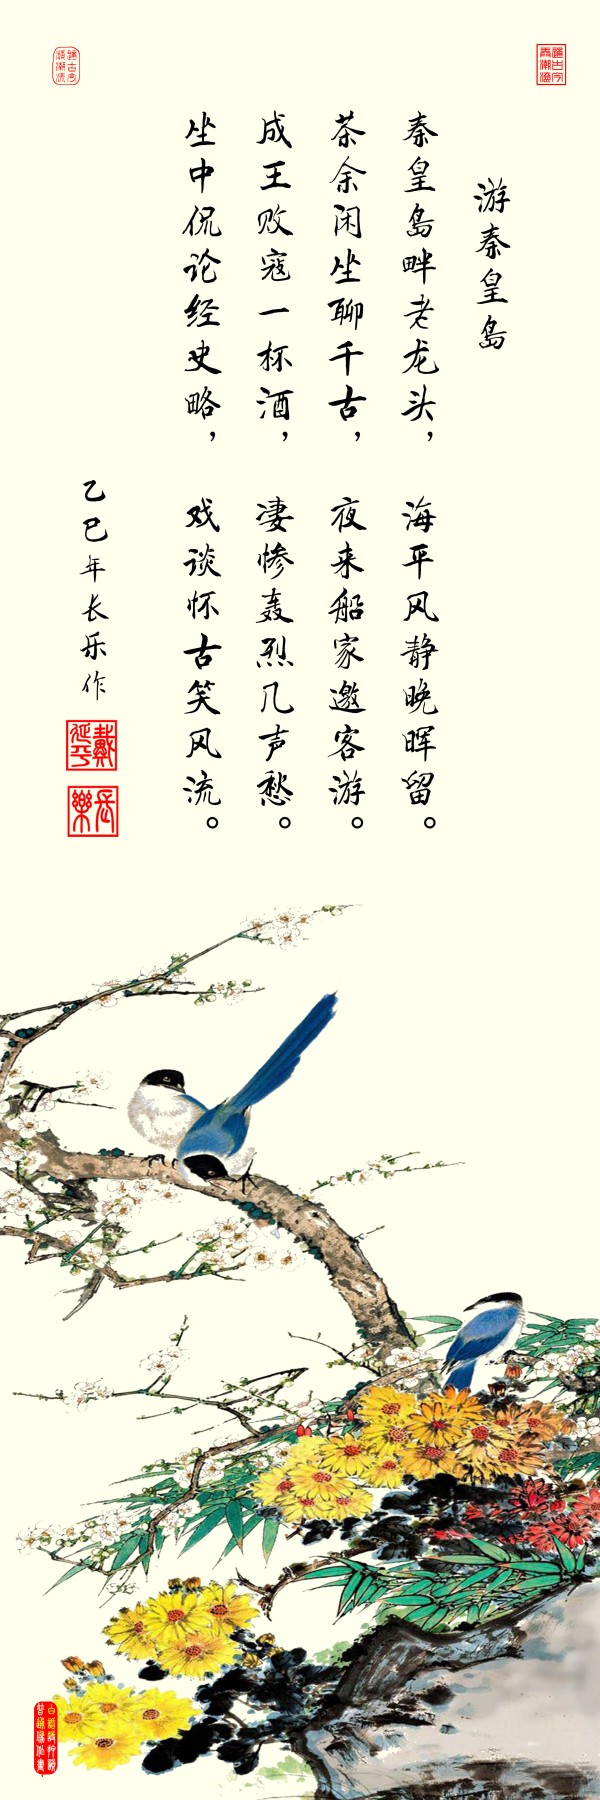 游秦皇岛
秦皇岛畔老龙头，海平风静晚晖留。
茶余闲坐聊千古，夜来船家邀客游。
成王败寇一杯酒，凄惨轰烈几声愁。
坐中侃论经史略，戏谈怀古笑风流。
乙巳年长乐作
戴延平
长樂